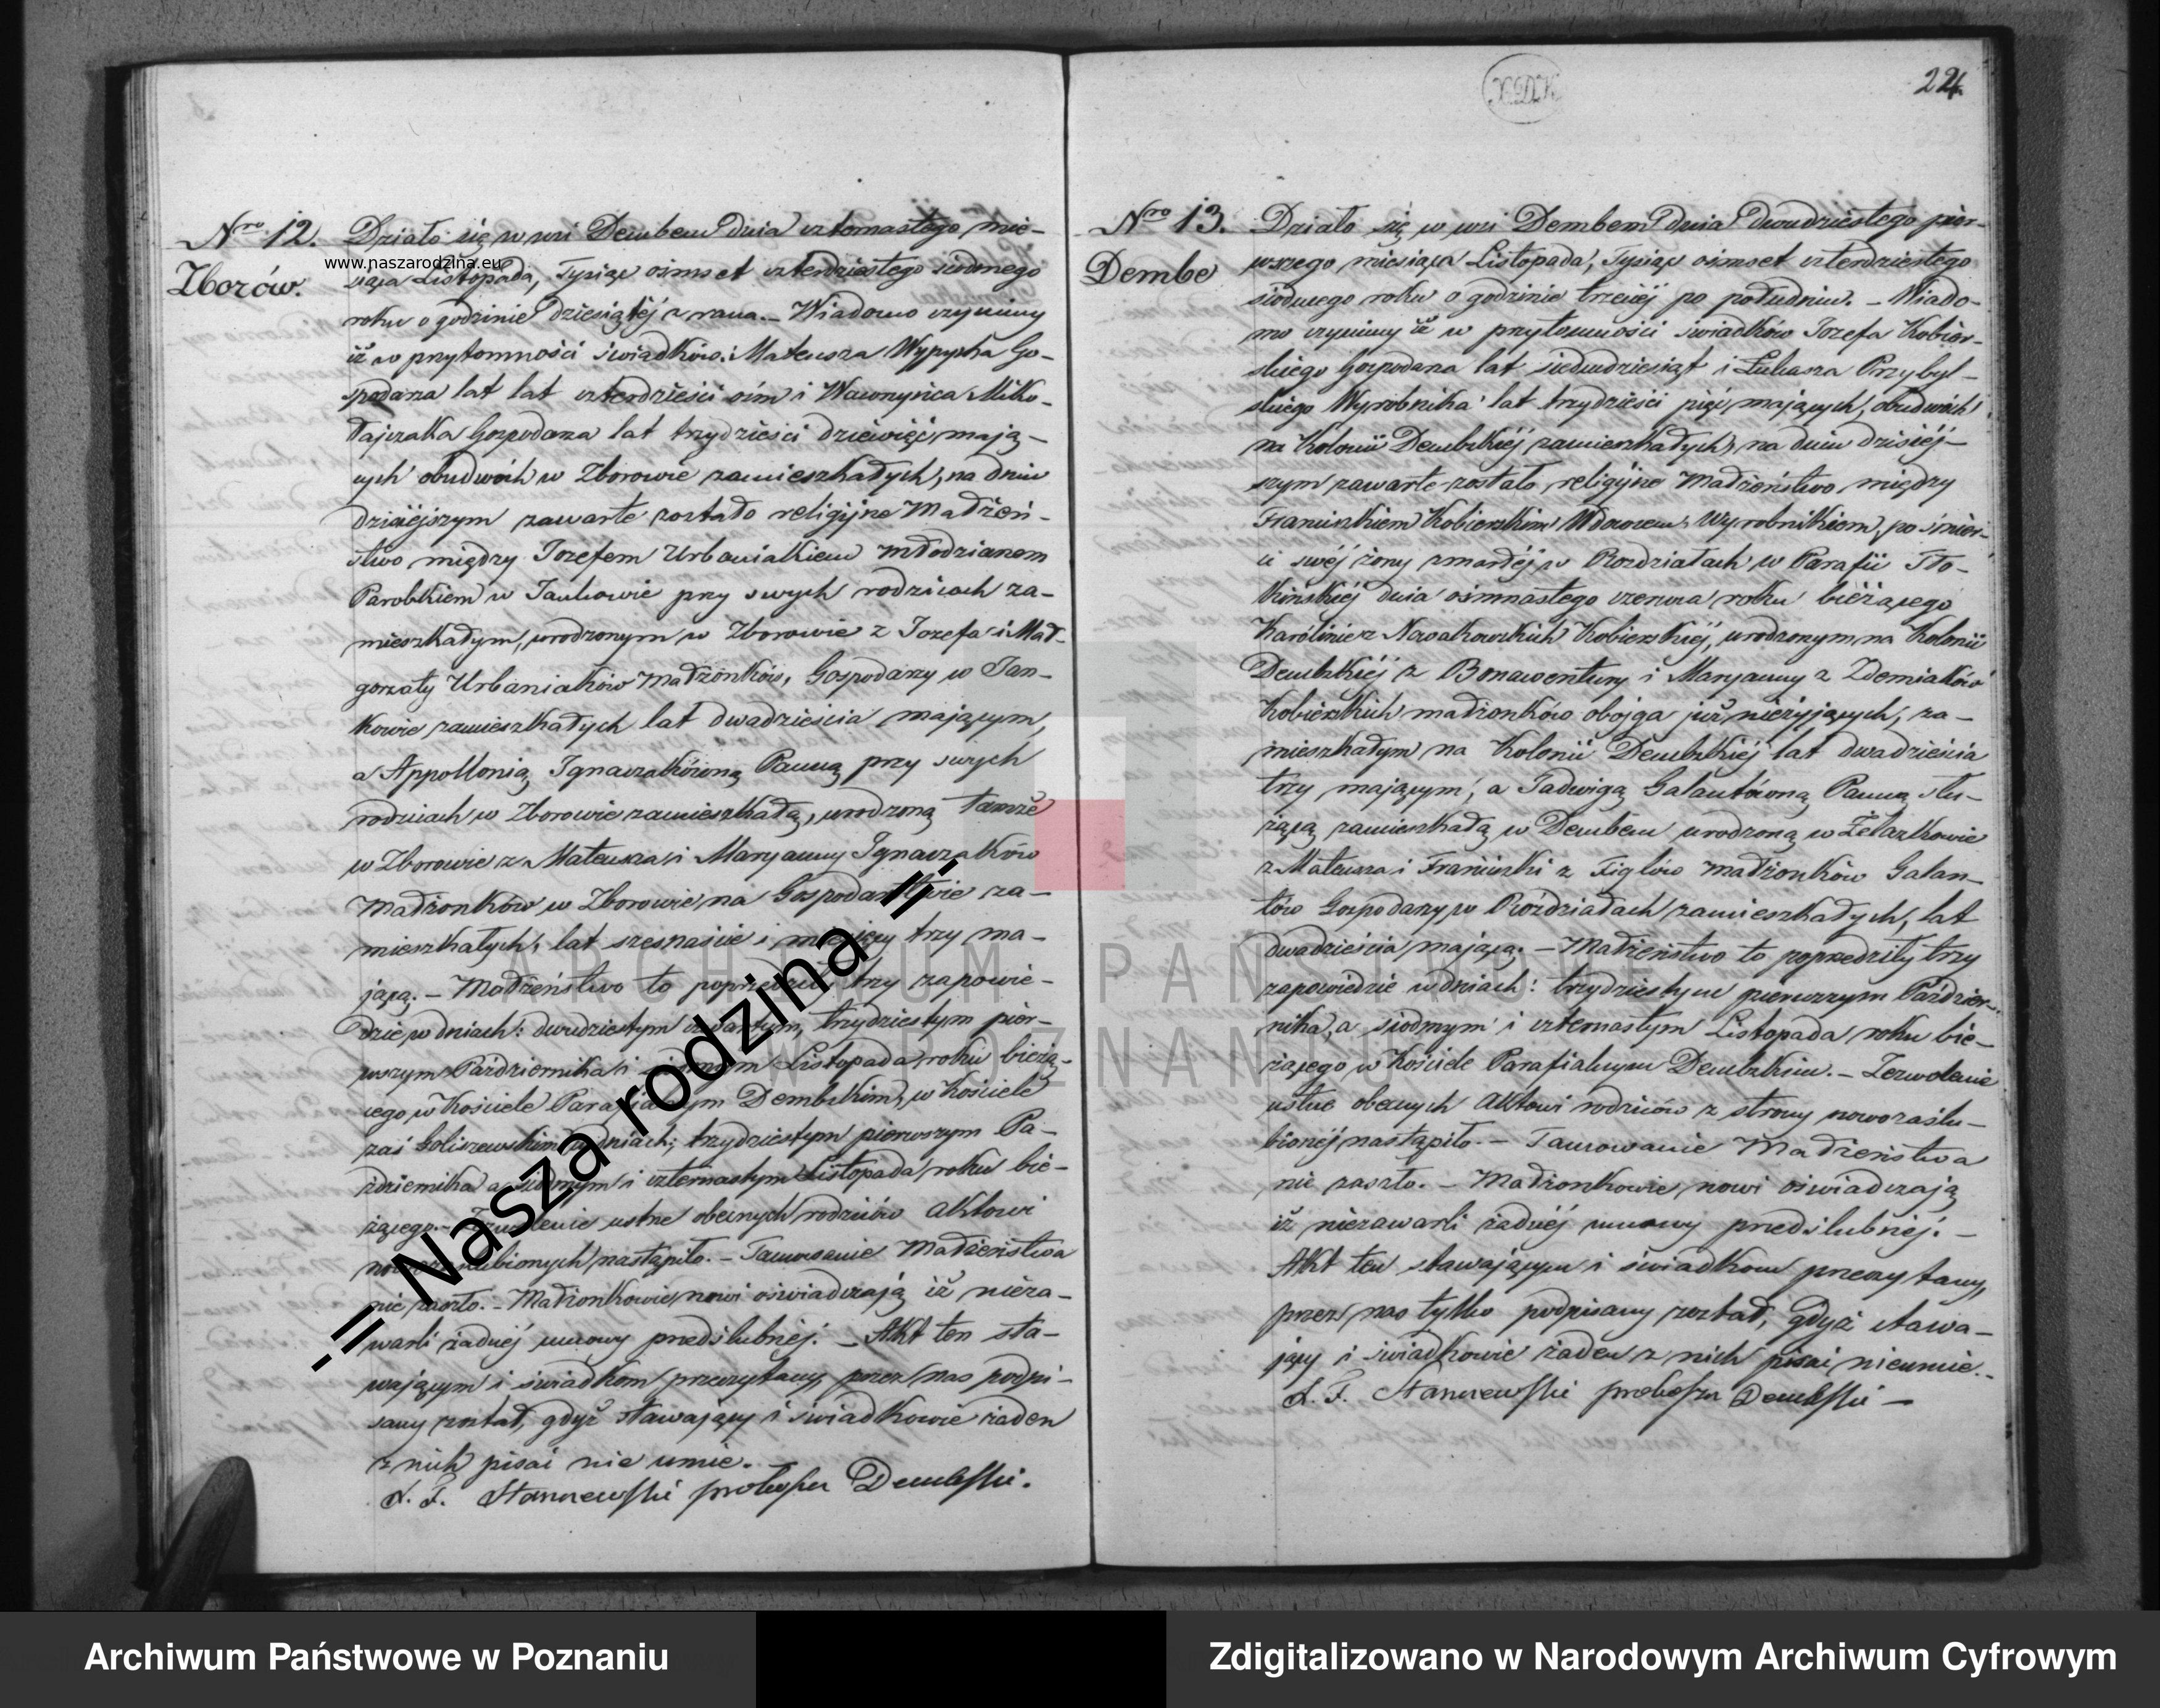 Nro 12.
Zborów.
Działo się w wsi Dembem dnia czternastego mie-
siąca Listopada, Tysiąc ośmset czterdziestego siódmego
roku o godzinie dziesiątéj z rana. – Wiadomo czyniemy
iż w przytomności świadków: Mateusza Wypycha Go-
spodarza lat lat czterdzieści óśm i Wawrzyńca Miko-
łajczaka Gospodarza lat trzydzieści dziewięć mają-
cych obudwóch w Zborowie zamieszkałych, na dniu
dzisiéjszym zawarte zostało religijne Małżeń-
stwo między Jozefem Urbaniakiem młodzianem
Parobkiem w Jankowie przy swych rodzicach za-
mieszkałym, urodzonym w Zborowie z Jozefa i Mał-
gorzaty Urbaniaków małżonków, Gospodarzy w Jan-
kowie zamieszkałych lat dwadzieścia mającym,
a Appollonią Ignaczakówną Panną przy swych
rodzicach w Zborowie zamieszkałą, urodzoną tamże
w Zborowie z Mateusza i Maryanny Ignaczaków
Małżonków w Zborowie na Gospodarstwie za-
mieszkałych, lat szesnaście i miesięcy trzy ma-
jącą. – Małżeństwo to poprzedziły trzy zapowie-
dzie w dniach: dwudziestym czwartym, trzydziestym pier-
wszym Października i siódmym Listopada roku bieżą-
cego w Kościele Parafialnym Dembskim, w Kościele
zaś Goliszewskim w dniach; trzydziestym pierwszym Pa-
ździernika a siódmym i czternastym Listopada roku bie-
żącego. – Zezwolenie ustne obecnych rodziców aktowi
nowozaślubionych nastąpiło. – Tamowanie Małżeństwa
nie zaszło. – Małżonkowie nowi oświadczają iż nieza-
warli żadnéj umowy przedślubnéj. – Akt ten sta-
wającym i świadkom przeczytany, przez nas podpi-
sany został, gdyż stawający i świadkowie żaden
z nich pisać nie umie.
X. F. Stanczewski proboszcz Dembski.
XDK
224
Nro 13.
Dembe
Działo się w wsi Dembem dnia dwudziestego pier-
wszego miesiąca Listopada, Tysiąc ośmset czterdziestego
siódmego roku o godzinie trzeciéj po południu. – Wiado-
mo czyniemy iż w przytomności świadków Jozefa Kobier-
skiego Gospodarza lat siedmdziesiąt i Łukasza Przybyl-
skiego Wyrobnika lat trzydzieści pięć mających, obudwóch
na Kolonii Dembskiéj zamieszkałych, na dniu dzisiéj-
szym zawarte zostało religijne Małżeństwo między
Franciszkiem Kobierskim Wdowcem, Wyrobnikiem, po śmier-
ci swéj żony zmarłéj w Rozdziałach w Parafii Tło-
kińskiéj dnia ośmnastego czerwca roku bieżącego
Karoliniez Nowakowskich Kobierskiéj, urodzonym na Kolonii
Dembskiéj z Bonawentury i Maryanny z Zdemiaków
Kobierskich małżonków obojga już nieżyjących, za-
mieszkałym na Kolonii Dembskiéj lat dwadzieścia
trzy mającym, a Jadwigą Galantówną Panną słu-
żącą zamieszkałą w Dembem urodzoną w Żelazkowie
z Mateusza i Franciszki z Figlów małżonków Galan-
tów Gospodarzy w Róździałach zamieszkałych, lat
dwadzieścia mającą. – Małżeństwo to poprzedziły trzy
zapowiedzie w dniach: trzydziestym pierwszym Paździer-
nika, a siódmym i czternastym Listopada roku bie-
żącego w Kościele Parafialnym Dembskim. – Zezwolenie
ustne obecnych Aktowi rodziców z strony nowozaślu-
bionéj nastąpiło. – Tamowanie Małżeństwa
nie zaszło. – Małżonkowie nowi oświadczają
iż niezawarli żadnéj umowy przedślubnéj. –
Akt ten stawającym i świadkom przeczytany,
przez nas tylko podpisany został, gdyż stawa-
jący i świadkowie żaden z nich pisać nieumie. –
X. F. Stanczewski proboszcz Dembski –
www.naszarodzina.eu
.:|| Nasza rodzina ||:.
ARCHIWUM PAŃSTWOWE
W POZNANIU
Archiwum Państwowe w Poznaniu
Zdigitalizowano w Narodowym Archiwum Cyfrowym